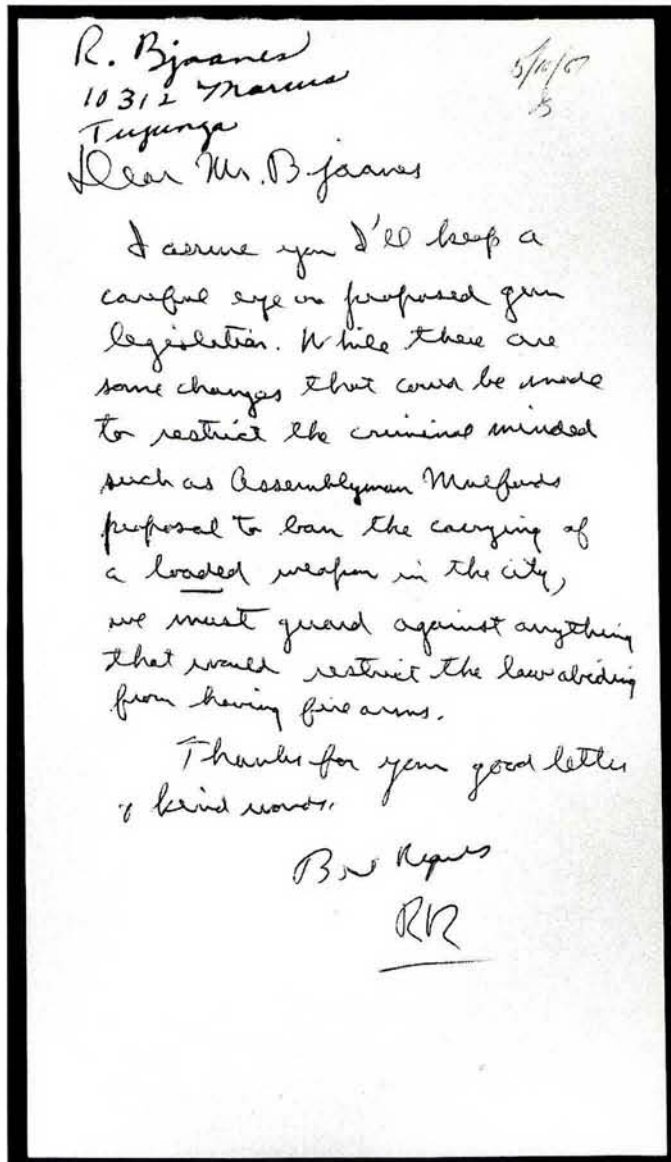 R. Bjaanes
10312 Marcus
Tujunga
5/10/67
Dear Mr. Bjaanes
I assure you I'll keep a
careful eye on proposed gun
legislation. While there are
some changes that could be made
to restrict the criminal minded
such as Assemblyman Mulfords
proposal to ban the carrying of
a loaded weapon in the city,
we must guard against anything
that would restrict the law abiding
from having fire arms.
Thanks for your good letter
& kind words.
Best Regards
RR